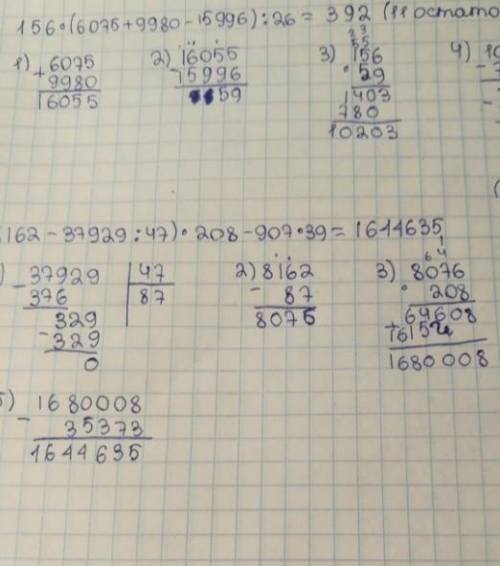 156·(6075+9980-15996):26= 392 (11 остато
1) 6075
+ 9980
16055
2) 16055
- 15996
59
3) 156
· 59
1403
780
10203
4) 10
162-37929:47)·208-907·39=1644635
37929 | 47
- 376 | 87
329
- 329
0
2) 8162
- 87
8075
3) 8076
· 208
64608
+ 1615
1680008
5) 1680008
- 35373
1644635